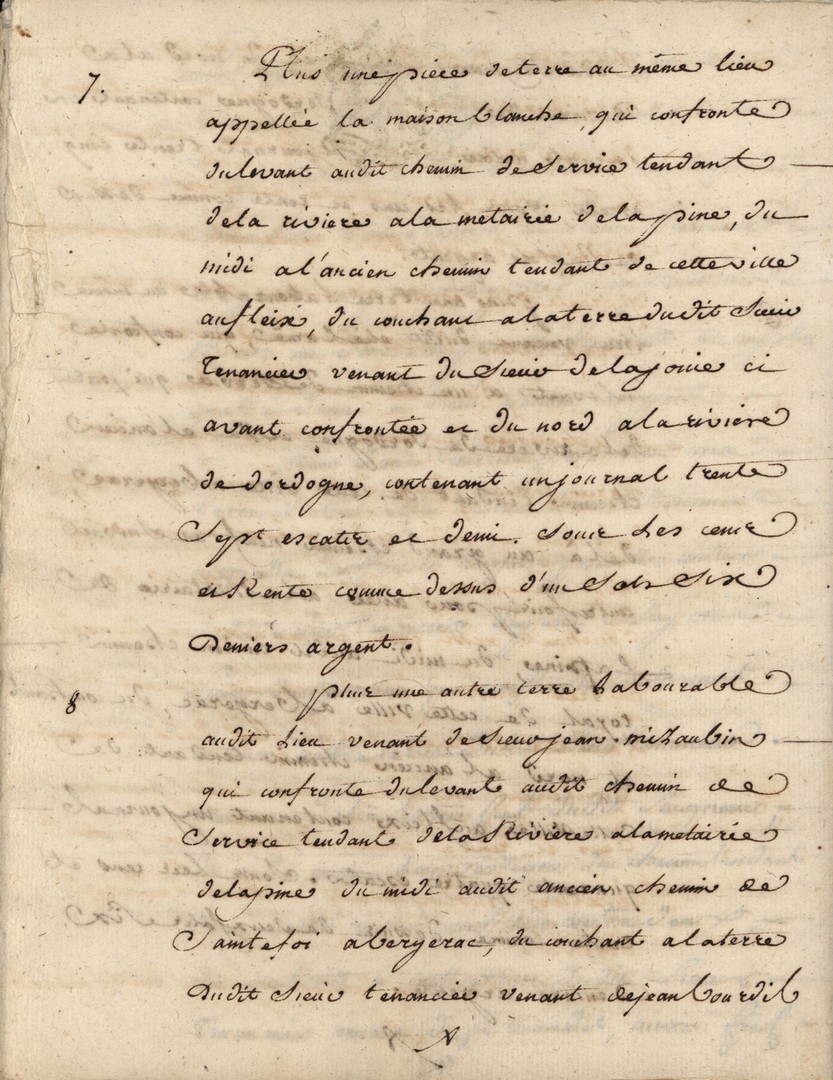 7.
Plus une piece de terre au même lieu
appellée la maison blanche, qui confronte
du levant audit chemin de Service tendant
de la riviere a la metairie de lapine, du
midi a l'ancien chemin tendant de cette ville
au fleix, du couchant a la terre du dit Sieur
Tenancier venant du Sieur de lajonie ci
avant confrontée et du nord a la rivière
de dordogne, contenant un journal trente
Sept escatz et demi. Sous Les cens
et Rente comme dessus d'un Sols Six
Deniers argent.
8
plus une autre terre Labourable
audit Lieu venant de Sieur jean mizaubin
qui confronte du levant audit chemin de
Service tendant de la Rivière a la metairie
de lapine du midi audit ancien chemin de
Sainte foi a bergerac, du couchant a la terre
Dudit Sieur tenancier venant de jean bourdil